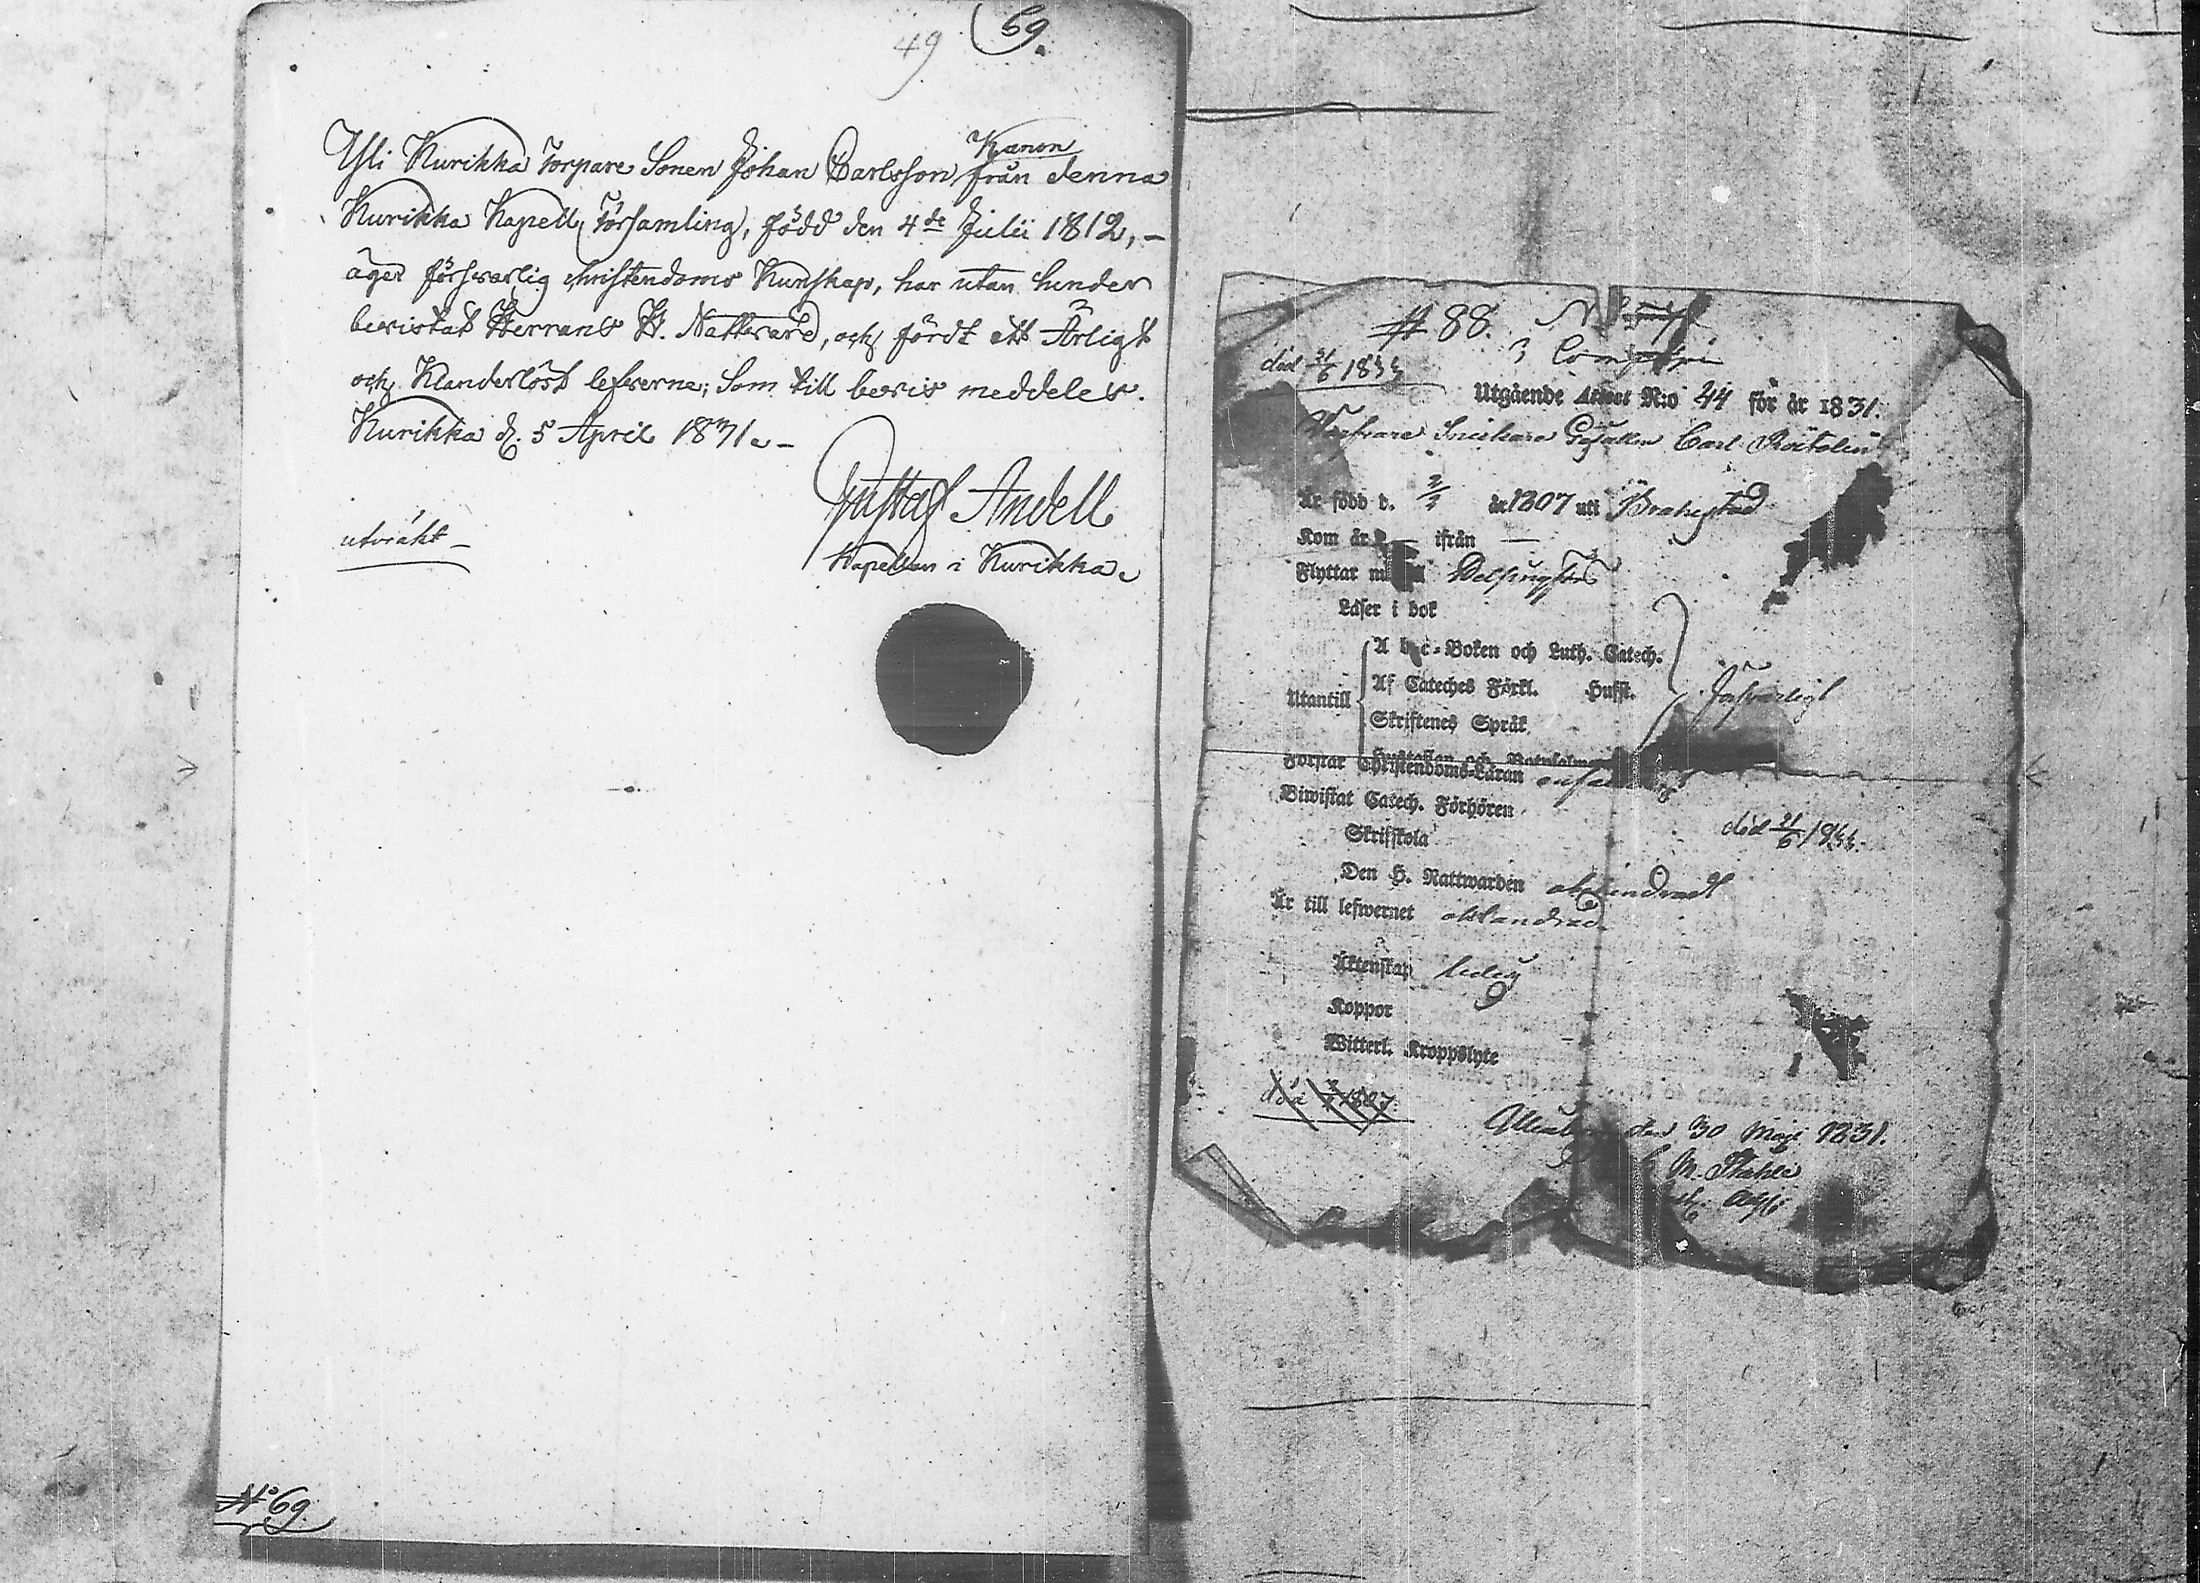 49 69.
Kanon
Yli Kurikka Torpare Sonen Johan Carlsson från denna
Kurikka Kapell Församling, född den 4de Julii 1812, –
äger försvarlig christendoms Kunskap, har utan hinder
bevistat Herrans H. Nattvard, och fördt ett Ärligt
och Klanderlöst lefverne; Som till bevis meddeles.
Kurikka d. 5 April 1831. –
Gustaf Andell
Kapellan i Kurikka.
utvräkt –
No 69.
# 88.
3 Compani
död 21/6 1833
Utgående Attest N:o 44 för år 1831.
Snickare Gesällen Carl
Är född d. 2/2 år 1807 uti Brahestad
Kom år – ifrån –
Flyttar nu till Helsingfors
Läser i bok
Utantill
A b c-Boken och Luth. Catech.
Af Cateches Förkl. Hufst.
Skriftenes Språk
Hustaflan och Botpsalmer
försvarligt
Förstår Christendoms-Läran
Biwistat Catech. Förhören
Skriftskola
död 21/6 1833.
Den H. Nattwarden oklandradt
Är till lefwernet oklandrad
Äktenskap ledig
Koppor
Witterl. Kroppslyte
den 30 Maji 1831.